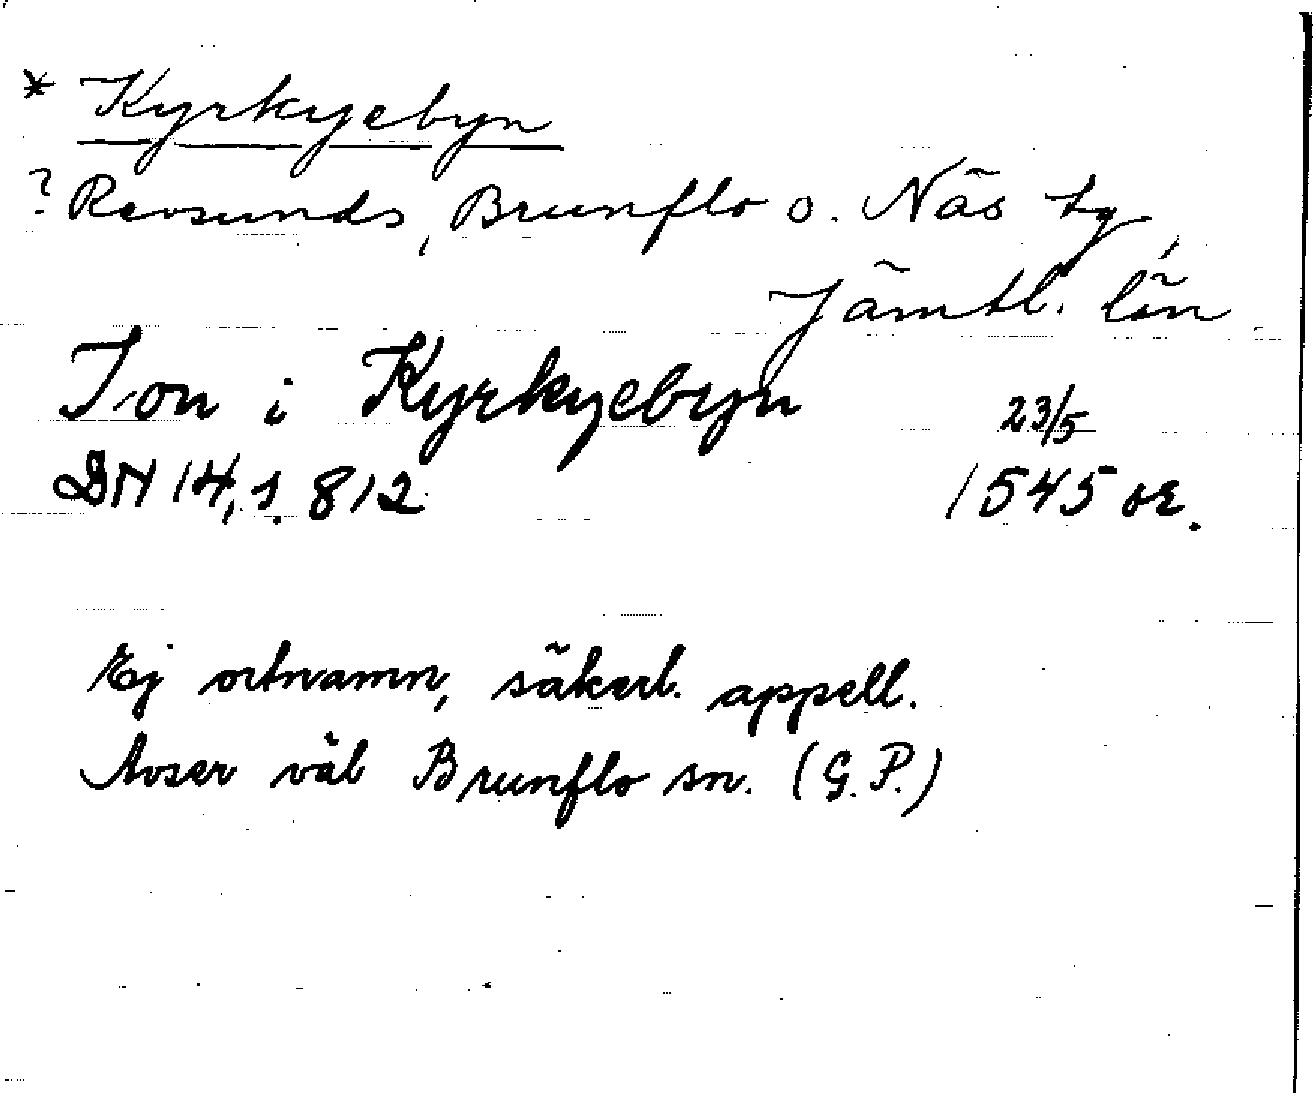 * Kyrkyebyn
? Revsunds, Brunflo o. Näs tg,
Jämtl. län
Jon i Kyrkyebyn 23/5
DN 14, s. 812 1545 or.
Ej ortnamn, säkerl. appell.
Avser väl Brunflo sn. (G.P.)